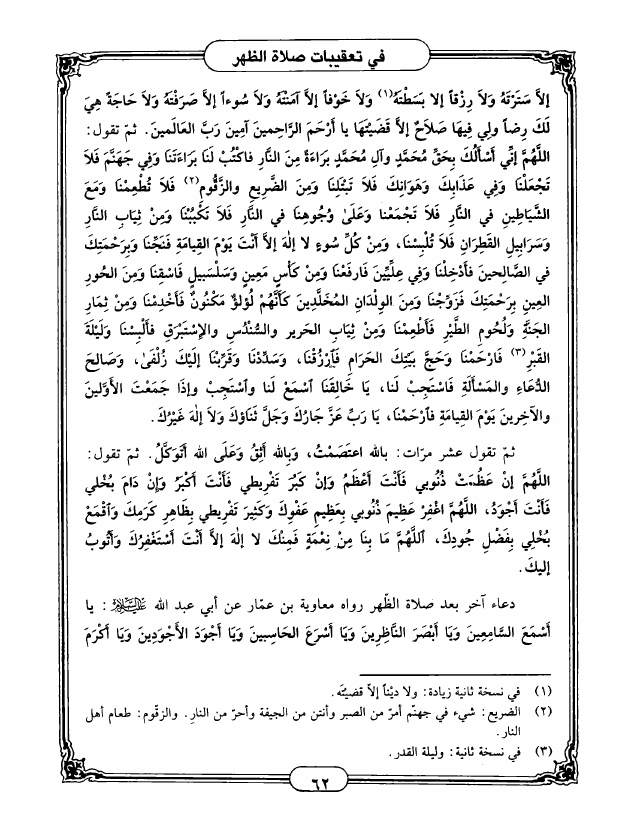 في تعقيبات صلاة الظهر
إلاَّ سَتَرْتَهُ وَلاَ رِزْقاً إلا بَسَطْتَهُ(١) وَلاَ خَوْفاً إلاَّ آمَنْتَهُ وَلاَ سُوءاً إلاَّ صَرَفْتَهُ وَلاَ حَاجَةً هِيَ
لَكَ رِضاً ولِي فِيهَا صَلاَحٌ إلاَّ قَضَيْتَهَا يا أَرْحَمَ الرَّاحِمينَ آمِينَ رَبَّ العَالَمينَ. ثمّ تقول:
اللَّهُمَّ إنِّي أَسْأَلُكَ بِحَقِّ مُحَمَّدٍ وَآلِ مُحَمَّدٍ بَرَاءَةً مِنَ النَّارِ فَاكْتُبْ لَنَا بَرَاءَتَنَا وَفِي جَهَنَّمَ فَلاَ
تَجْعَلْنَا وَفِي عَذَابِكَ وَهَوَانِكَ فَلاَ تَبْتَلِنَا وَمِنَ الضَّرِيعِ والزَّقُّومِ(٢) فَلاَ تُطْعِمْنَا وَمَعَ
الشَّيَاطِينِ في النَّارِ فَلاَ تَجْمَعْنا وَعَلَىٰ وُجُوهِنَا في النَّارِ فَلاَ تَكْبُبْنَا وَمِنْ ثِيَابِ النَّارِ
وَسَرَابِيلِ القَطِرَانِ فَلاَ تُلْبِسْنَا، وَمِنْ كُلِّ سُوءٍ لا إلٰهَ إلاَّ أَنْتَ يَوْمَ القِيَامَةِ فَنَجِّنَا وَبِرَحْمَتِكَ
في الصَّالِحينَ فأَدْخِلْنَا وَفِي عِلِّيِّينَ فَارفَعْنا وَمِنْ كَأْسٍ مَعِينٍ وَسَلْسَبِيلٍ فَاسْقِنَا وَمِنَ الحُورِ
العِينِ بِرَحْمَتِكَ فَزَوِّجْنَا وَمِنَ الوِلْدَانِ المُخَلَّدِينَ كَأَنَّهُمْ لُؤْلُؤٌ مَكْنُونٌ فَأَخْدِمْنَا وَمِنْ ثِمَارِ
الجَنَّةِ وَلُحُومِ الطَّيْرِ فَأَطْعِمْنَا وَمِنْ ثِيَابِ الحَرِيرِ والسُّنْدُسِ والإسْتَبْرَقِ فَأَلْبِسْنَا وَلَيْلَةَ
القَبْرِ(٣) فَارْحَمْنَا وَحَجَّ بَيْتِكَ الحَرَامِ فَٱرْزُقْنَا، وَسَدِّدْنَا وَقَرِّبْنَا إلَيْكَ زُلْفَىٰ، وَصَالِحَ
الدُّعَاءِ والمَسْأَلَةِ فَاسْتَجِبْ لَنا، يَا خَالِقَنَا ٱسْمَعْ لَنا وٱسْتَجِبْ وإذَا جَمَعْتَ الأَوَّلينَ
والآخِرينَ يَوْمَ القِيامَةِ فَٱرْحَمْنَا، يَا رَبِّ عَزَّ جَارُكَ وَجَلَّ ثَنَاؤُكَ وَلاَ إلٰهَ غَيْرُكَ.
ثمّ تقول عشر مرّات: بالله اعتَصَمْتُ، وَبِالله أَثِقُ وَعَلَى الله أَتَوَكَّلُ. ثمّ تقول:
اللَّهُمَّ إنْ عَظُمَتْ ذُنُوبِي فَأَنْتَ أَعْظَمُ وَإنْ كَبُرَ تَفْرِيطي فَأَنْتَ أَكْبَرُ وَإنْ دَامَ بُخْلِي
فَأَنْتَ أَجْوَدُ، اللَّهُمَّ اغْفِرْ عَظِيمَ ذُنُوبِي بِعَظِيمِ عَفْوِكَ وَكَثِيرَ تَفْرِيطي بِظَاهِرِ كَرَمِكَ وَٱقْمَعْ
بُخْلِي بِفَضْلِ جُودِكَ، ٱللَّهُمَّ مَا بِنَا مِنْ نِعْمَةٍ فَمِنْكَ لا إلٰهَ إلاَّ أَنْتَ أَسْتَغْفِرُكَ وَأَتُوبُ
إليكَ.
دعاء آخر بعد صلاة الظّهر رواه معاوية بن عمّار عن أبي عبد الله عليه السلام: يا
أَسْمَعَ السَّامِعينَ وَيَا أَبْصَرَ النَّاظِرِينَ وَيَا أَسْرَعَ الحَاسِبينَ وَيَا أَجْوَدَ الأَجْوَدِينَ وَيَا أَكْرَمَ
(١) في نسخة ثانية زيادة: ولا ديْناً إلاّ قضيتَه.
(٢) الضريع: شيء في جهنّم أمرّ من الصبر وأنتن من الجيفة وأحرّ من النار. والزقوم: طعام أهل
النار.
(٣) في نسخة ثانية: وليلة القدر.
٦٢